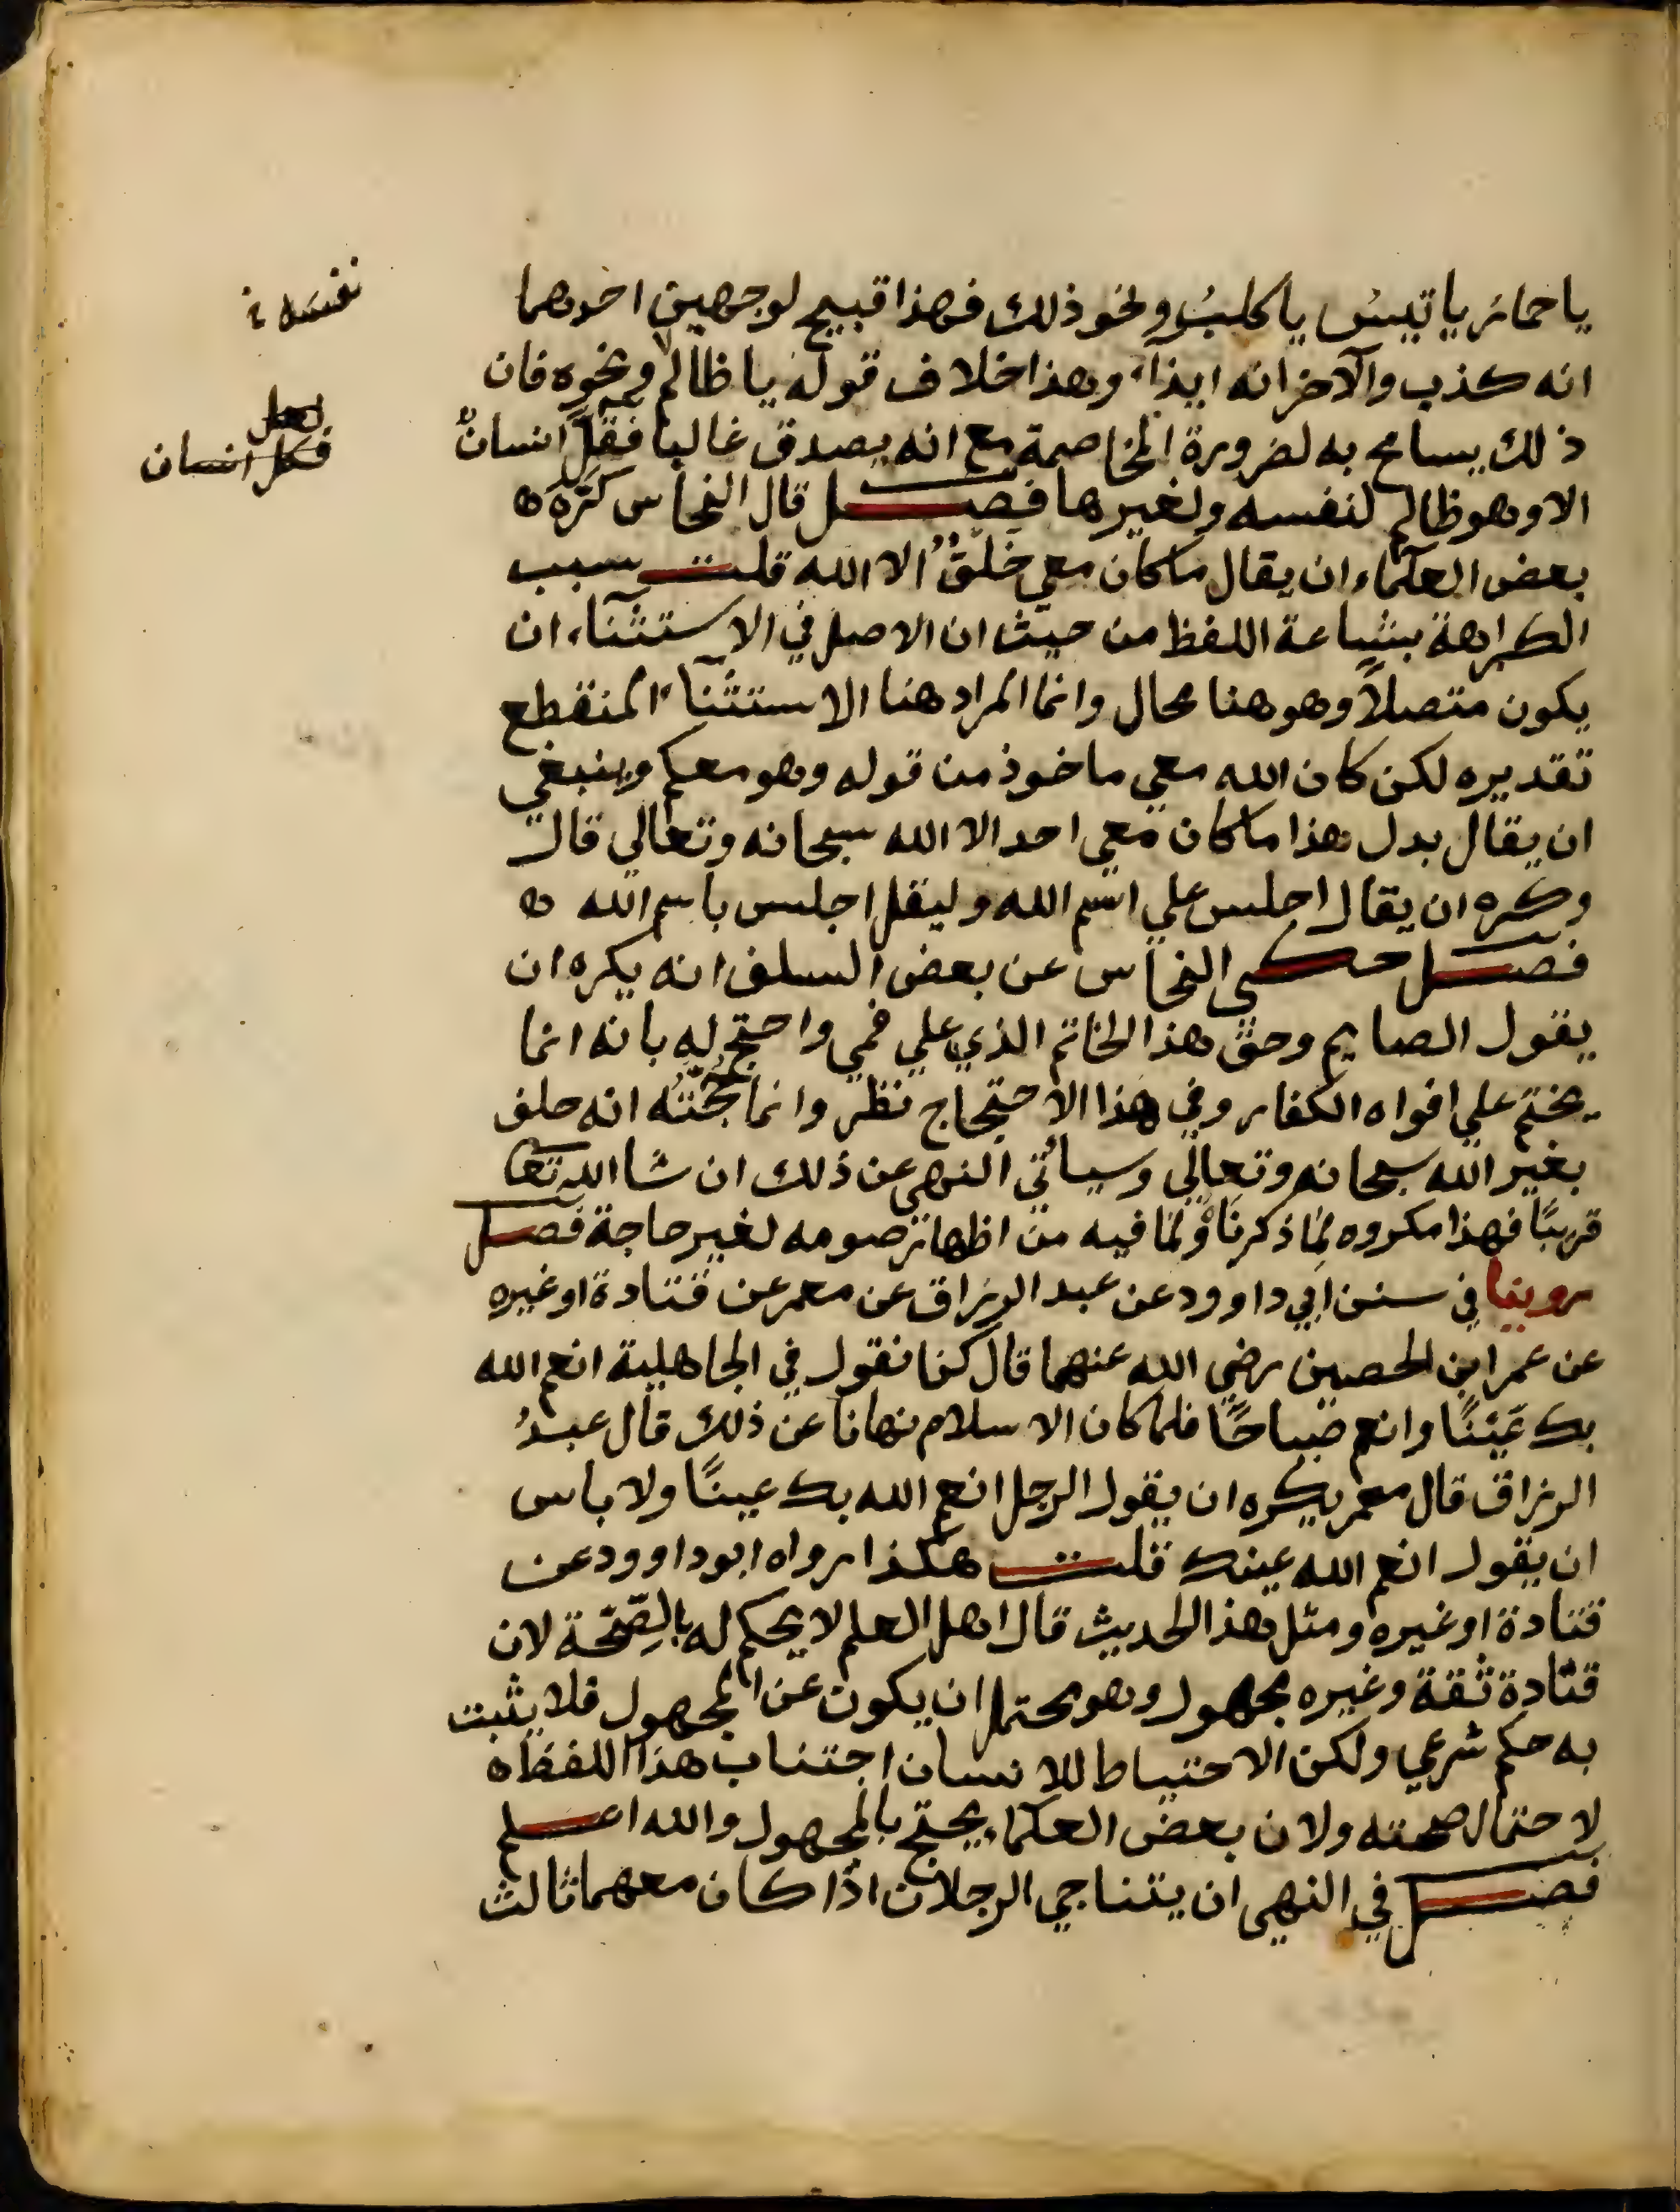 يا حمار يا تيس يا كلبُ ونحو ذلك فهذا قبيح لوجهين احدهما
انه كذب والآخر انه ايذآء وهذا خلاف قوله يا ظالم ونحوه فان
ذلك يسامح به لضرورة المخاصمة مع انه يصدق غالبا فقلّ انسانٌ
الا وهو ظالم لنفسه ولغيرها فصل قال النحاس كَرِهَ ه
بعض العلماء ان يقال ما كان معي خَلْقٌ الا الله قلت سبب
الكراهة بشاعة اللفظ من حيث ان الاصل في الاستثنآء ان
يكون متصلاً وهو هنا محال وانما المراد هنا الاستثنآء المنقطع
تقديره لكن كان الله معي ماخوذ من قوله وهو معكم وينبغي
ان يقال بدل هذا ما كان معي احد الا الله سبحانه وتعالي قال
وكره ان يقال اجلس علي اسم الله وليقل اجلس باسم الله ه
فصل حكى النحاس عن بعض السلف انه يكره ان
يقول الصايم وحق هذا الخاتم الذي علي فمي واحتج له بانه انما
يختم علي افواه الكفار وفي هذا الاحتجاج نظر وانما حُجّتُه انه حلف
بغير الله سبحانه وتعالي وسيأتي النهي عن ذلك ان شا الله تعا
قريبًا فهذا مكروه لما ذكرناه ولما فيه من اظهار صومه لغير حاجة فصل
روينا في سنن ابي داوود عن عبد الرزاق عن معمر عن قتادة او غيره
عن عمر ابن الحصين رضي الله عنهما قال كنا نقول في الجاهلية انعم الله
بك عَيْنًا وانعم صباحًا فلما كان الاسلام نهانا عن ذلك قال عبدُ
الرزاق قال معمر يكره ان يقول الرجل انعم الله بك عينًا ولا باس
ان يقول انعم الله عينك قلت هكذا رواه ابو داوود عن
قتادة او غيره ومثل هذا الحديث قال اهل العلم لا يحكم له بالصِّحّة لان
قتادة ثقة وغيره مجهول وهو محتمل ان يكون عن المجهول فلا يثبت
به حكم شرعي ولكن الاحتياط للانسان اجتناب هذا اللفظ ه
لاحتمال صحته ولان بعض العلماء يحتج بالمجهول والله اعلم
فصل في النهي ان يتناجي الرجلان اذا كان معهما ثالث
لعل
فكل انسان